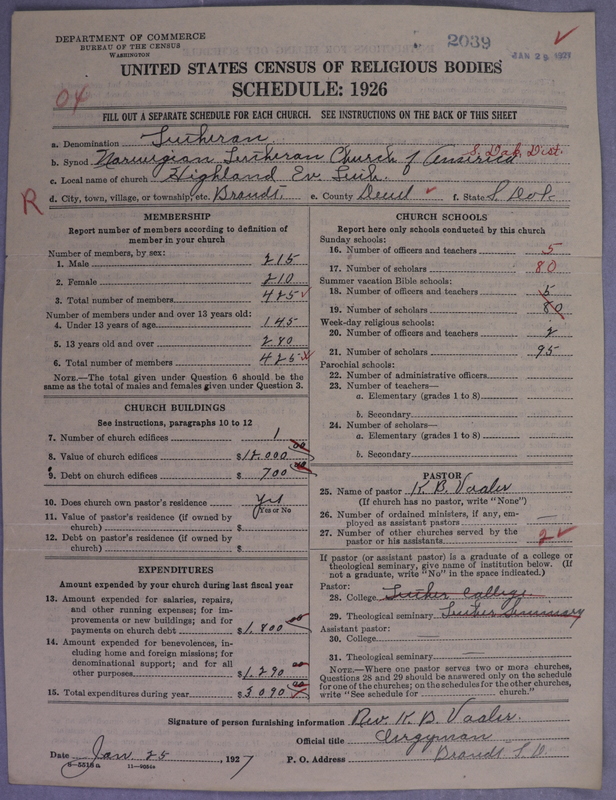 DEPARTMENT OF COMMERCE
BUREAU OF THE CENSUS
WASHINGTON
2039
JAN 25 1927
UNITED STATES CENSUS OF RELIGIOUS BODIES
SCHEDULE: 1926
04
FILL OUT A SEPARATE SCHEDULE FOR EACH CHURCH. SEE INSTRUCTIONS ON THE BACK OF THIS SHEET
a. Denomination Lutheran
b. Synod Norwegian Lutheran Church of America S. Dak. Dist.
c. Local name of church Highland Ev. Luth.
R d. City, town, village, or township, etc. Brandt. e. County Deuel ✓ f. State S. Dak
MEMBERSHIP
Report number of members according to definition of
member in your church
Number of members, by sex:
1. Male 215
2. Female 210
3. Total number of members 425 ✓
Number of members under and over 13 years old:
4. Under 13 years of age 145
5. 13 years old and over 280
6. Total number of members 425
NOTE.—The total given under Question 6 should be the
same as the total of males and females given under Question 3.
CHURCH BUILDINGS
See instructions, paragraphs 10 to 12
7. Number of church edifices 1
8. Value of church edifices $18.000 00
9. Debt on church edifices $700 00
10. Does church own pastor's residence Yes
Yes or No
11. Value of pastor's residence (if owned by
church) $
12. Debt on pastor's residence (if owned by
church) $
EXPENDITURES
Amount expended by your church during last fiscal year
13. Amount expended for salaries, repairs,
and other running expenses; for im-
provements or new buildings; and for
payments on church debt $1.800 00
14. Amount expended for benevolences, in-
cluding home and foreign missions; for
denominational support; and for all
other purposes $1.290 00
15. Total expenditures during year $3090 00
CHURCH SCHOOLS
Report here only schools conducted by this church
Sunday schools:
16. Number of officers and teachers 5
17. Number of scholars 80
Summer vacation Bible schools:
18. Number of officers and teachers 5
19. Number of scholars 80
Week-day religious schools:
20. Number of officers and teachers 2
21. Number of scholars 95
Parochial schools:
22. Number of administrative officers
23. Number of teachers—
a. Elementary (grades 1 to 8)
b. Secondary
24. Number of scholars—
a. Elementary (grades 1 to 8)
b. Secondary
PASTOR
25. Name of pastor K. B. Vaaler
(If church has no pastor, write "None")
26. Number of ordained ministers, if any, em-
ployed as assistant pastors —
27. Number of other churches served by the
pastor or his assistants 2 ✓
If pastor (or assistant pastor) is a graduate of a college or
theological seminary, give name of institution below. (If
not a graduate, write "No" in the space indicated.)
Pastor:
28. College Luther College
29. Theological seminary Luther Seminary
Assistant pastor:
30. College
31. Theological seminary —
NOTE.—Where one pastor serves two or more churches,
Questions 28 and 29 should be answered only on the schedule
for one of the churches; on the schedules for the other churches,
write "See schedule for church."
Signature of person furnishing information Rev. K. B. Vaaler.
Official title Clergyman
Date Jan. 25, 1927 P. O. Address Brandt S. D.
8—5518a 11—9084